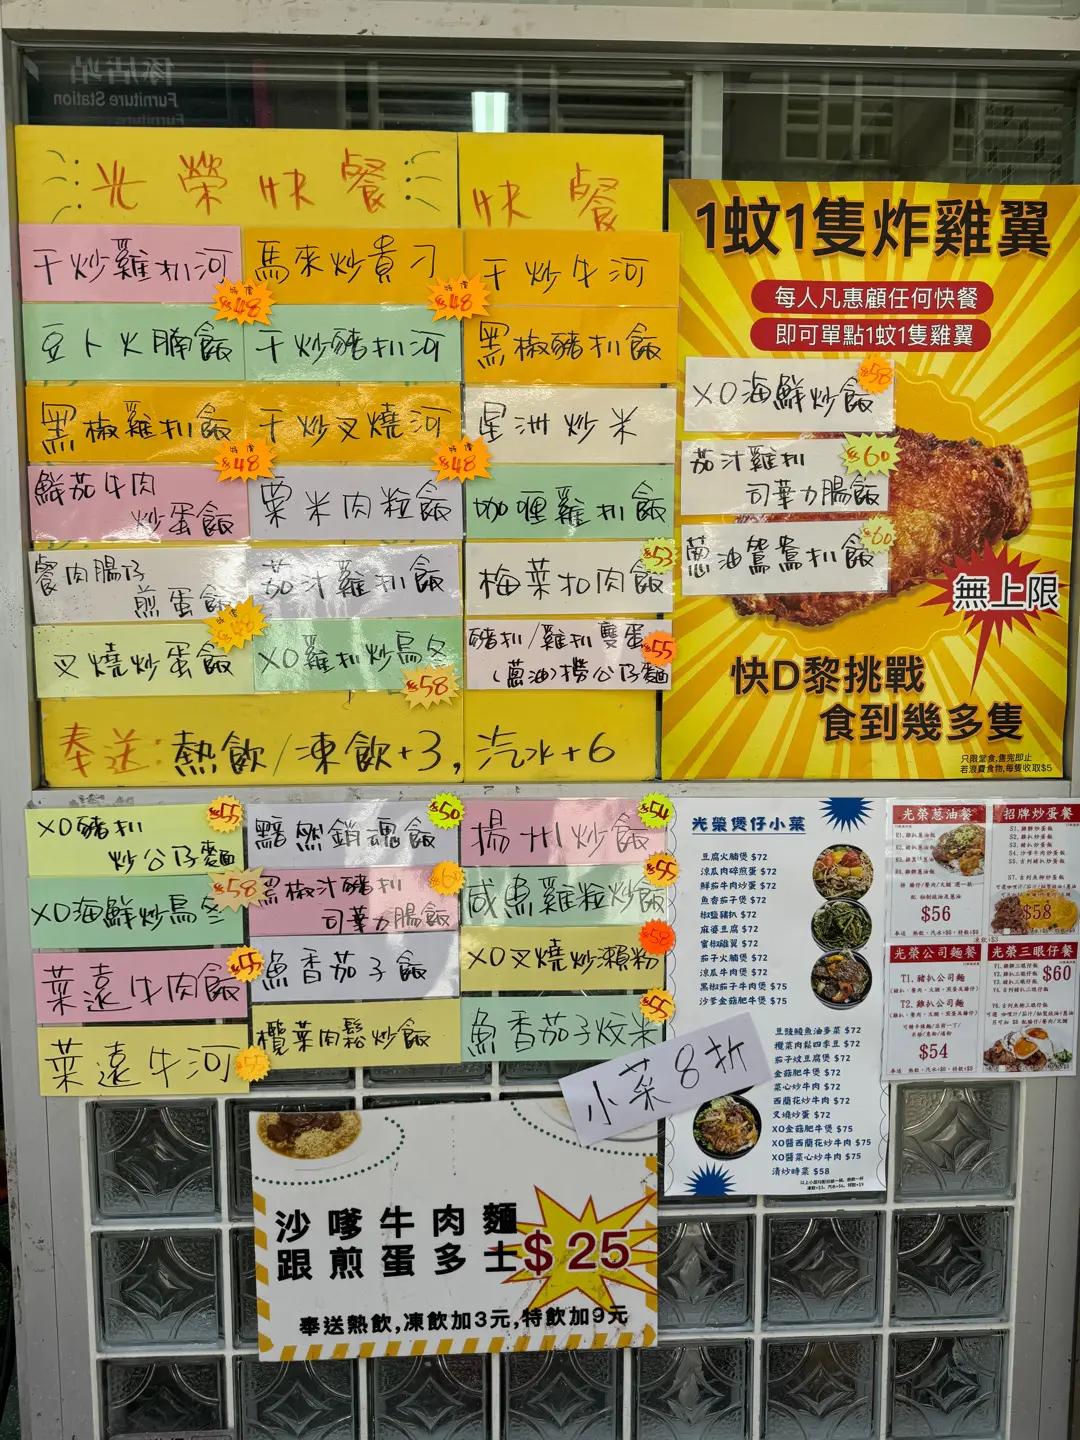 傢店站
Furniture Station
光榮快餐
快餐
干炒雞扒河
馬來炒貴刁
干炒牛河
特價
$48
特價
$48
豆卜火腩飯
干炒豬扒河
黑椒豬扒飯
黑椒雞扒飯
干炒叉燒河
星洲炒米
特價
$48
特價
$48
鮮茄牛肉
炒蛋飯
粟米肉粒飯
咖喱雞扒飯
餐肉腸仔
煎蛋飯
茄汁雞扒飯
梅菜扣肉飯
$53
叉燒炒蛋飯
XO雞扒炒烏冬
$58
豬扒/雞扒雙蛋
(蔥油)撈公仔麵
$55
奉送:熱飲/凍飲+3,汽水+6
1蚊1隻炸雞翼
每人凡惠顧任何快餐
即可單點1蚊1隻雞翼
XO海鮮炒飯
$58
茄汁雞扒
司華力腸飯
$60
蔥油鴛鴦扒飯
$60
無上限
快D黎挑戰
食到幾多隻
只限堂食,售完即止
若浪費食物,每隻收取$5
XO豬扒
炒公仔麵
$55
黯然銷魂飯
$50
揚州炒飯
$54
XO海鮮炒烏冬
$58
黑椒汁豬扒
司華力腸飯
咸魚雞粒炒飯
$55
菜遠牛肉飯
$55
魚香茄子飯
XO叉燒炒瀨粉
$58
菜遠牛河
欖菜肉鬆炒飯
魚香茄子炆米
$55
小菜8折
光榮煲仔小菜
豆腐火腩煲 $72
涼瓜肉碎煎蛋 $72
鮮茄牛肉炒蛋 $72
魚香茄子煲 $72
椒鹽豬扒 $72
麻婆豆腐 $72
蜜椒雞翼 $72
茄子火腩煲 $72
涼瓜牛肉煲 $72
黑椒茄子牛肉煲 $75
沙爹金菇肥牛煲 $75
豆豉鯪魚油麥菜 $72
欖菜肉鬆四季豆 $72
茄子炆豆腐煲 $72
金菇肥牛煲 $72
菜心炒牛肉 $72
西蘭花炒牛肉 $72
叉燒炒蛋 $72
XO金菇肥牛煲 $75
XO醬西蘭花炒牛肉 $75
XO醬菜心炒牛肉 $75
清炒時菜 $58
光榮蔥油餐
$56
招牌炒蛋餐
$58
光榮公司麵餐
T1. 豬扒公司麵
T2. 雞扒公司麵
$54
光榮三眼仔餐
$60
沙嗲牛肉麵
跟煎蛋多士 $25
奉送熱飲,凍飲加3元,特飲加9元